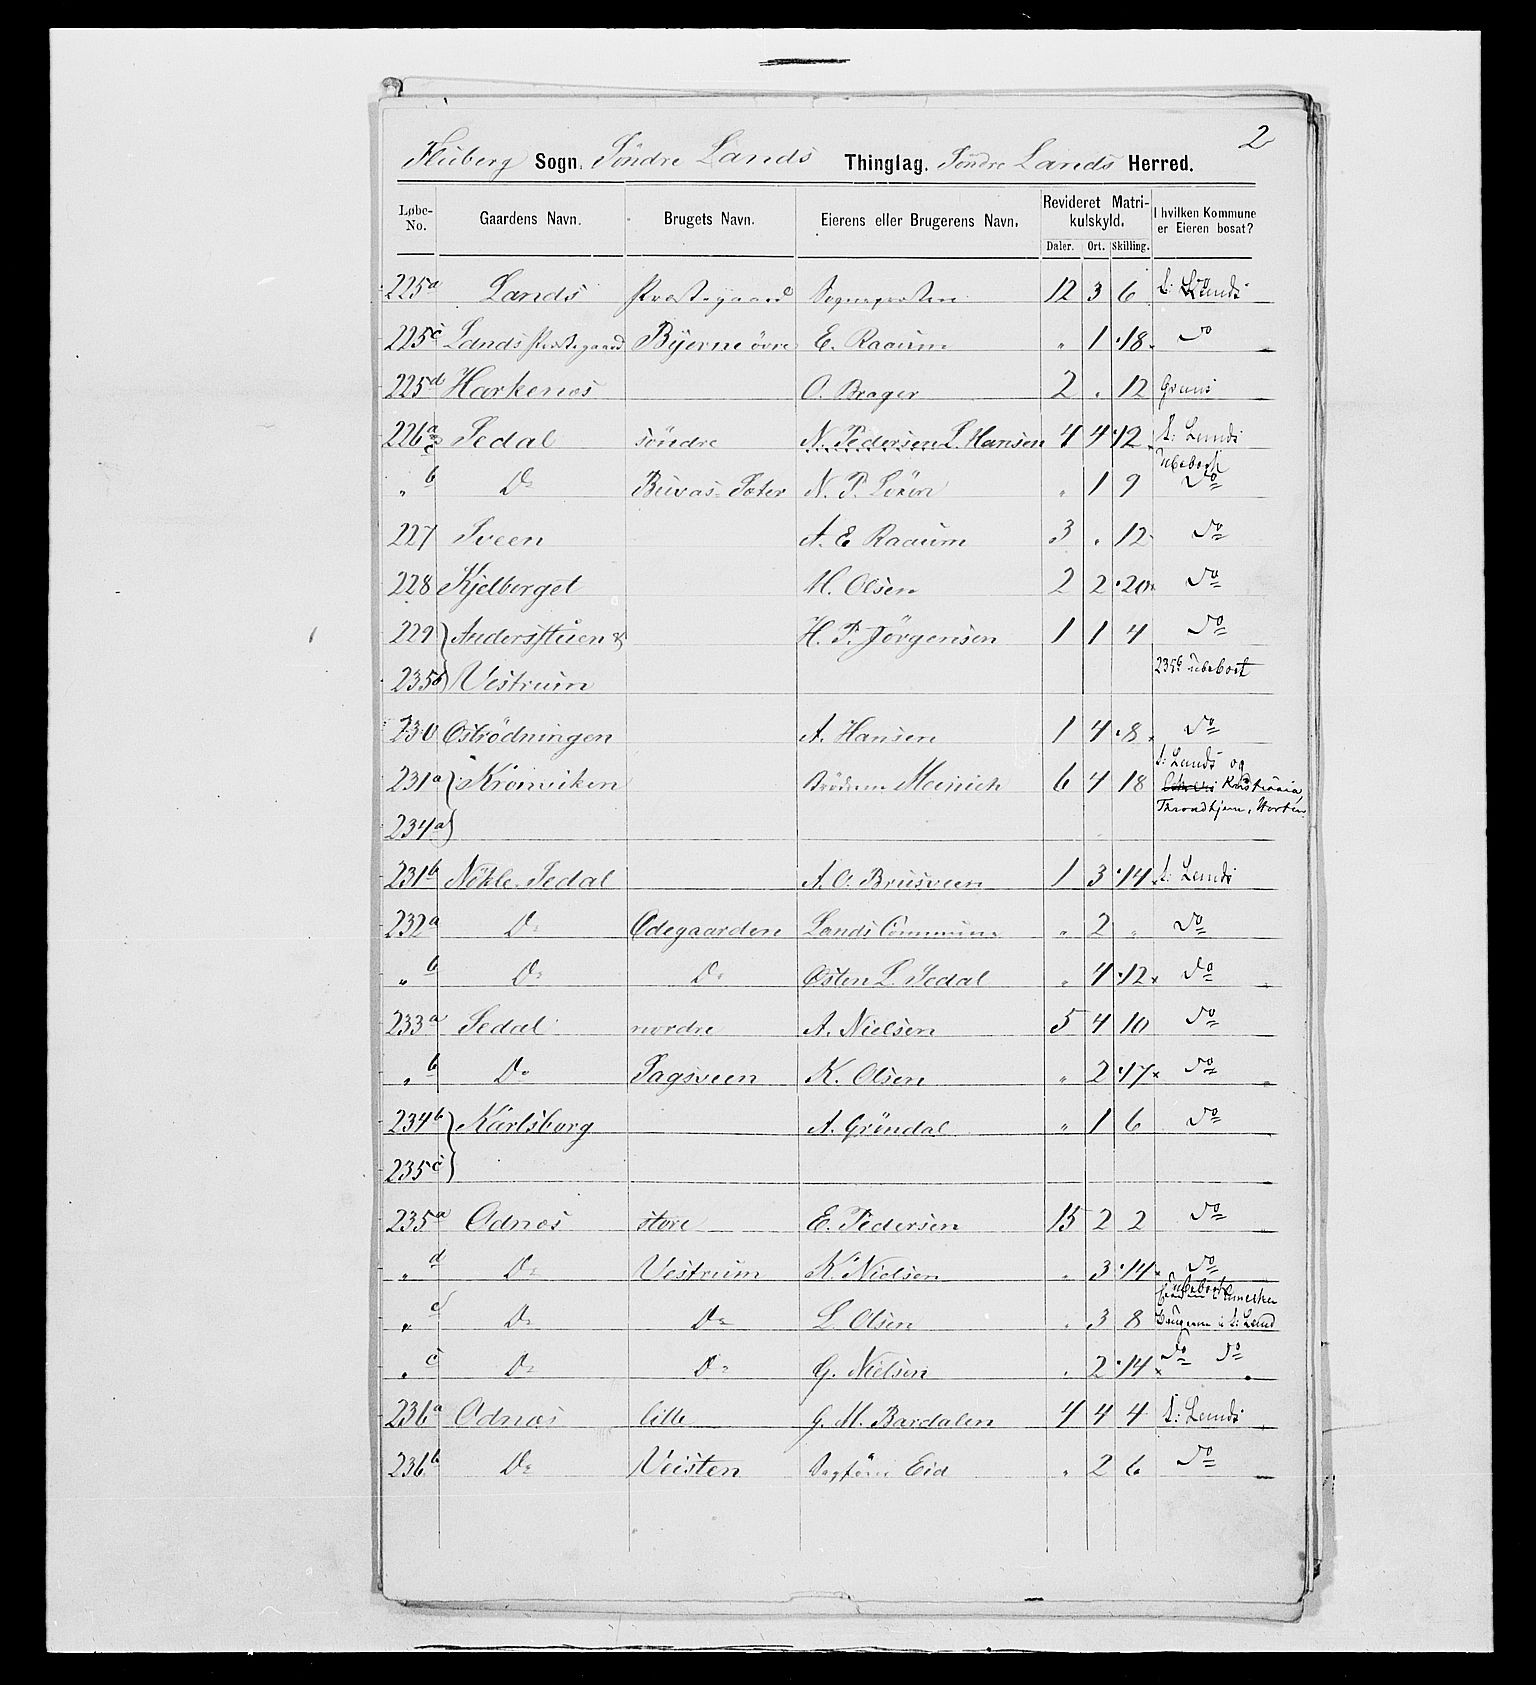 2
Fluberg Sogn. Söndre Lands Thinglag. Söndre Lands Herred.
Løbe-No. Gaardens Navn. Brugets Navn. Eierens eller Brugerens Navn. Revideret Matrikulskyld. I hvilken Kommune er Eieren bosat?
Daler. Ort. Skilling.
225a Lands Præstegaard Sognepresten 12 3 6 S: Lands
225c Lands Præstegaard Byerne övre E. Raaum " 1 18 do
225d Harkenes O. Brager 2 . 12 Grans
226a Sedal söndre N. Pedersen L. Hansen 4 4 12 S: Lands
" b Do Buvas Sæter N. P. " 1 9 Ubeboet do
227 Sveen A. E Raaum 3 . 12 do
228 Kjelberget M. Olsen 2 2 20 do
229 Andersstuen & H. P. Jörgensen 1 1 4 do
235b Vestrum 235b Ubeboet
230 Oströdningen A. Hansen 1 4 8 do
231a Kronviken Brödrene Meinich 6 4 18 S: Lands og Kristiania, Throndhjem, Horten
234a
231b Nökle Sedal A. O. Brusveen 1 3 14 S: Lands
232a Do Ödegaarden Lands Commune " 2 " do
" b Do Do Østen L. Sedal " 4 12 do
233a Sedal nordre A. Nielsen 5 4 10 do
" b Do Sagsveen K. Olsen " 2 17 do
234b Karlsborg A. Gröndal " 1 6 do
235c
235a Odnes store E. Pedersen 15 2 2 do
" d Do Vestrum K. Nielsen " 3 14 do Ubeboet
" Do Do L. Olsen . 3 8 Eieren i Amerika Brugeren i S: Land
" Do Do G. Nielsen . 2 14 do do
236a Odnes lille G. M. Bardalen 4 4 4 S: Lands
236b Do Veisten Sagförer Eid . 2 6 do